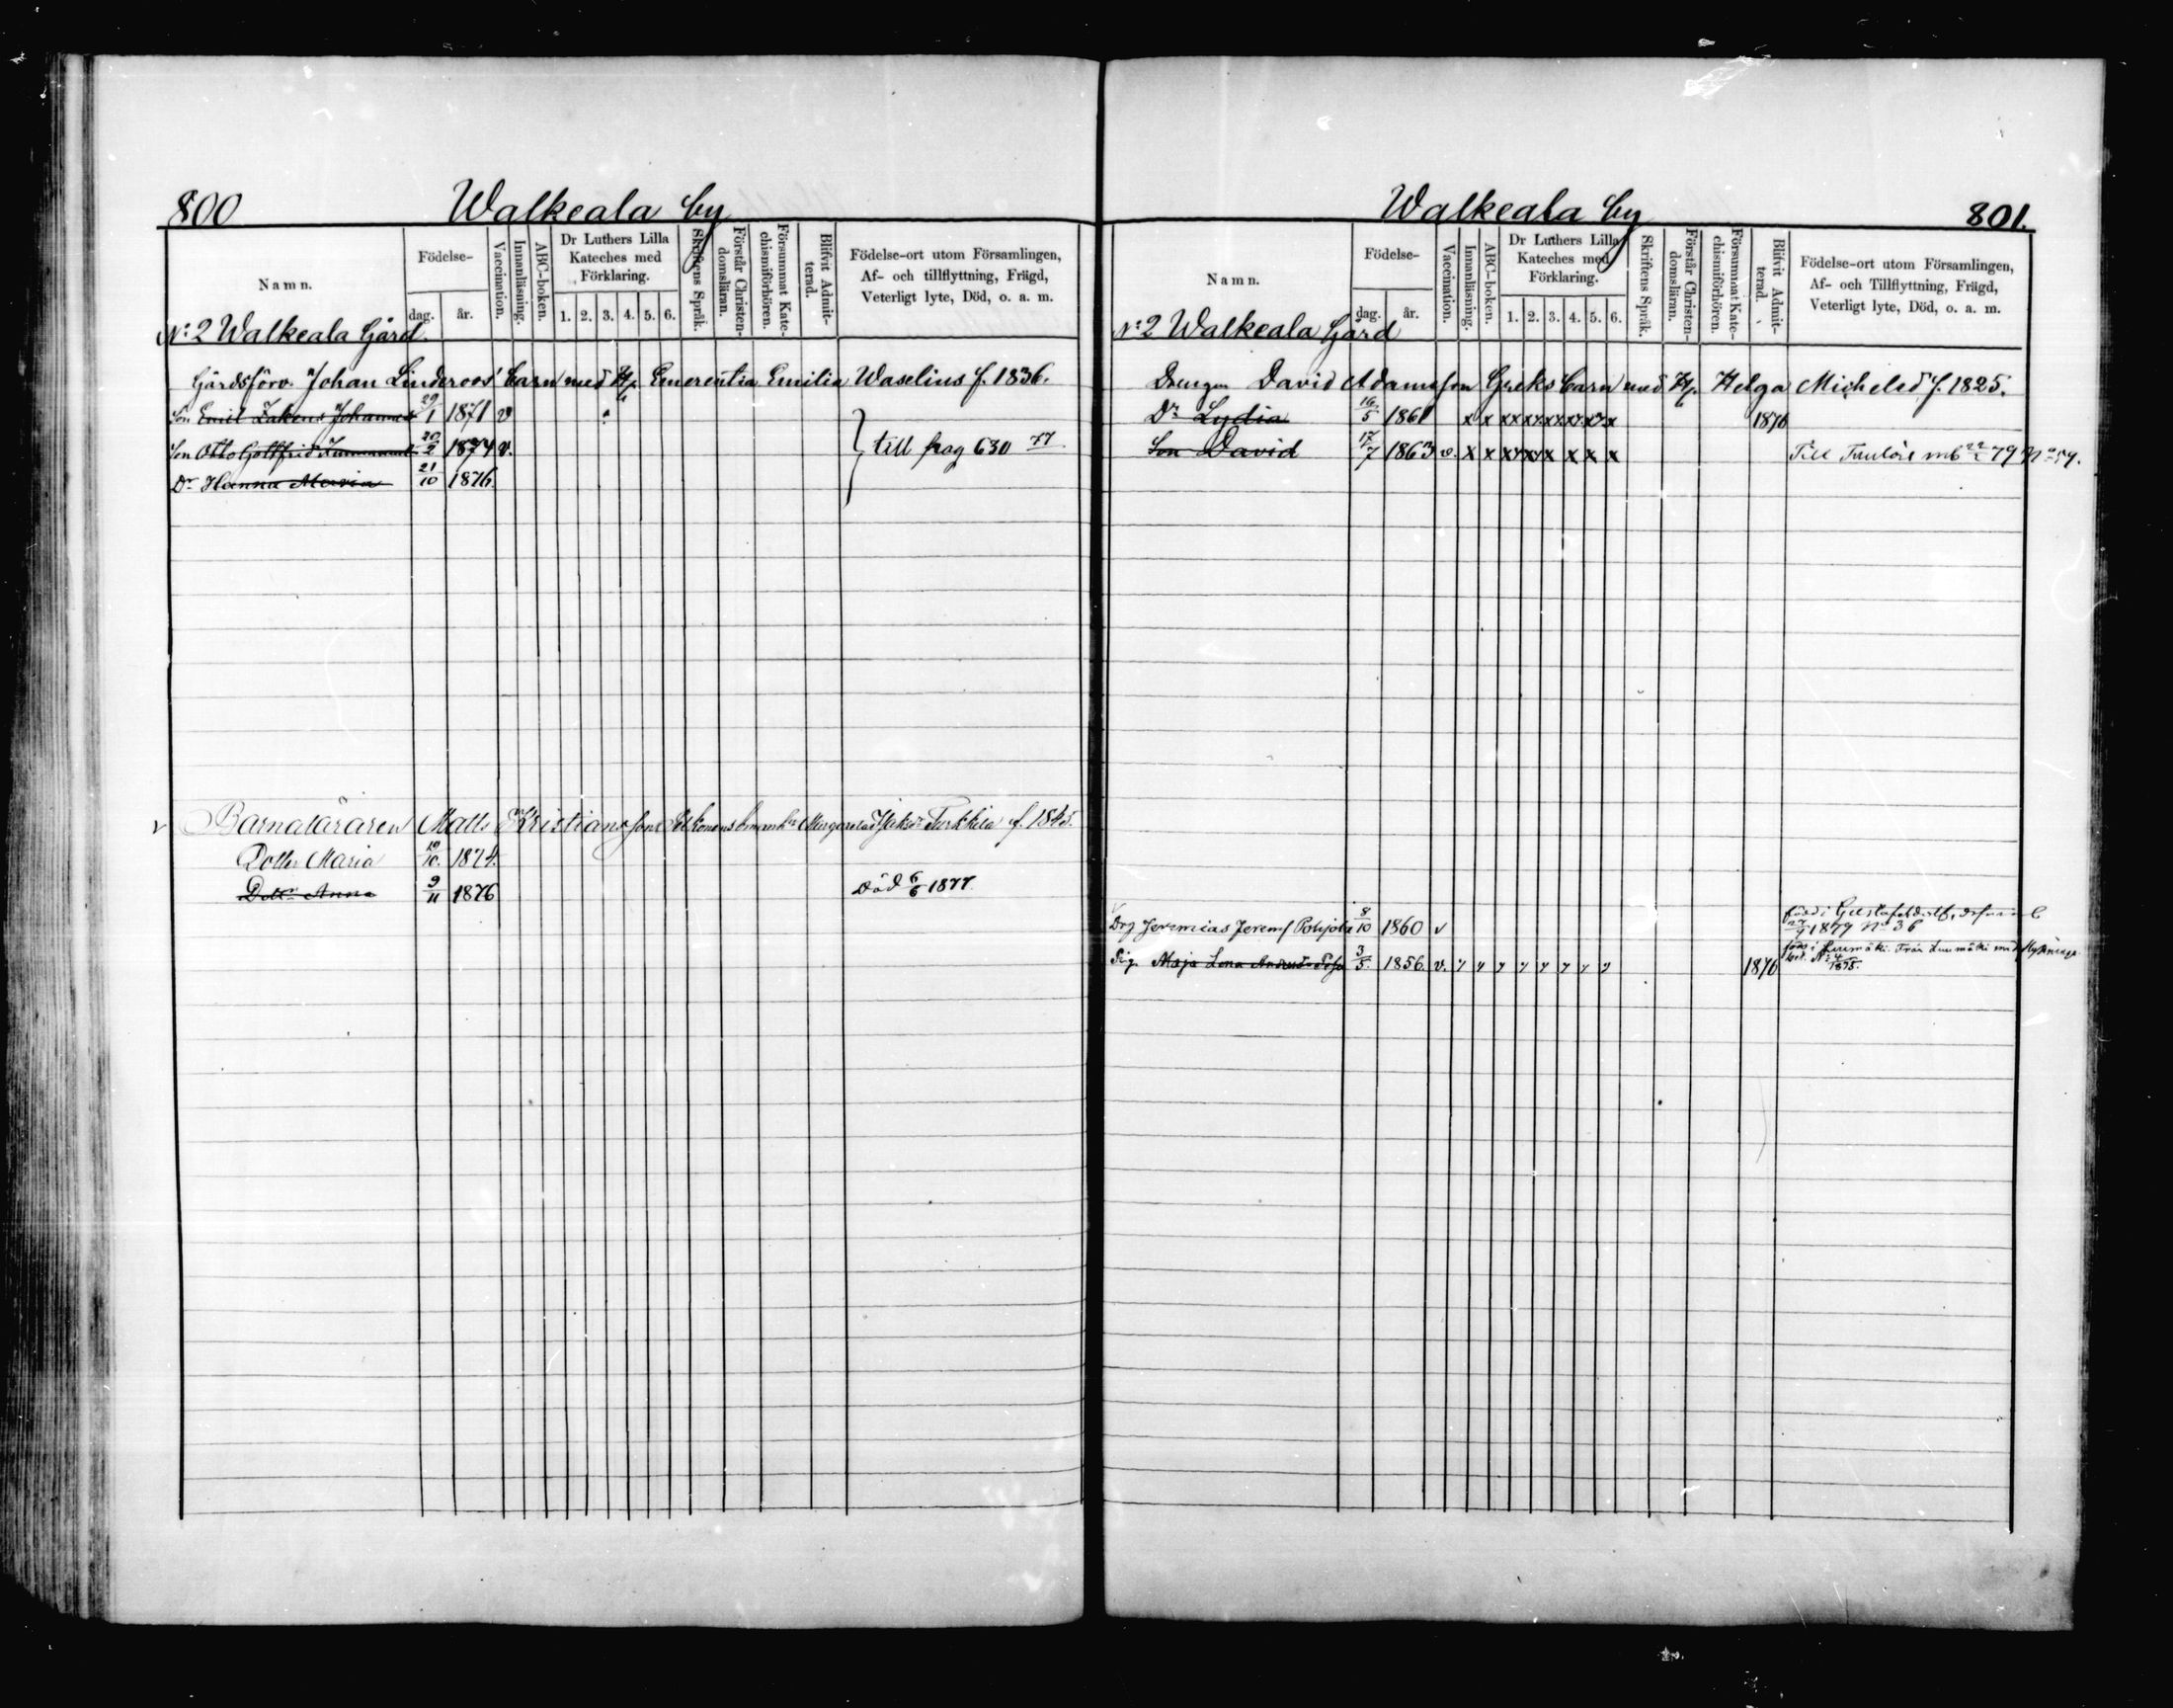 800 Walkeala by
Namn. Födelse- dag. år. Vaccination. Innanläsning. ABC-boken. Dr Luthers Lilla Kateches med Förklaring. 1. 2. 3. 4. 5. 6. Skriftens Språk. Förstår Christen-domsläran. Försummat Kate-chismiförhören. Blifvit Admit-terad. Födelse-ort utom Församlingen, Af- och tillflyttning, Frägd, Veterligt lyte, Död, o. a. m.
No 2 Walkeala Gård.
Gårdsförv. Johan Linderoos' barn med H. Emerentia Emilia Waselius f. 1836.
Son Emil Johannes 29/1 1871 v
Son Otto Gottfrid 20/2 1874 v. till pag 630 77
Dr Hanna Maria 21/10 1876.
v Barnaläraren Matts Kristiansson Turkkila f. 1845.
Dotter Maria 19/10. 1874.
Dottr Anna 9/11 1876 Död 6/6 1877.
Walkeala by 801.
Namn. Födelse- dag. år. Vaccination. Innanläsning. ABC-boken. Dr Luthers Lilla Kateches med Förklaring. 1. 2. 3. 4. 5. 6. Skriftens Språk. Förstår Christen-domsläran. Försummat Kate-chismiförhören. Blifvit Admit-terad. Födelse-ort utom Församlingen, Af- och Tillflyttning, Frägd, Veterligt lyte, Död, o. a. m.
No 2 Walkeala Gård
Drengen David Adamsson Greks barn med H. Helga Michelsd f. 1825.
Dr Lydia 16/5 1861 x x xx xx xx xx v. x 1876
Son David 17/7 1863 v. x x xx xx x x x x Till mb 79 No 54.
född i
Drg Jeremias Jeremf Pohjola 8/10 1860 v 1879 No 36
född i Luumäki. Från Luumäki med
Pig. Maja Lena 3/5. 1856. v. y y y y y y y y 1876 bet. No 4/1875.